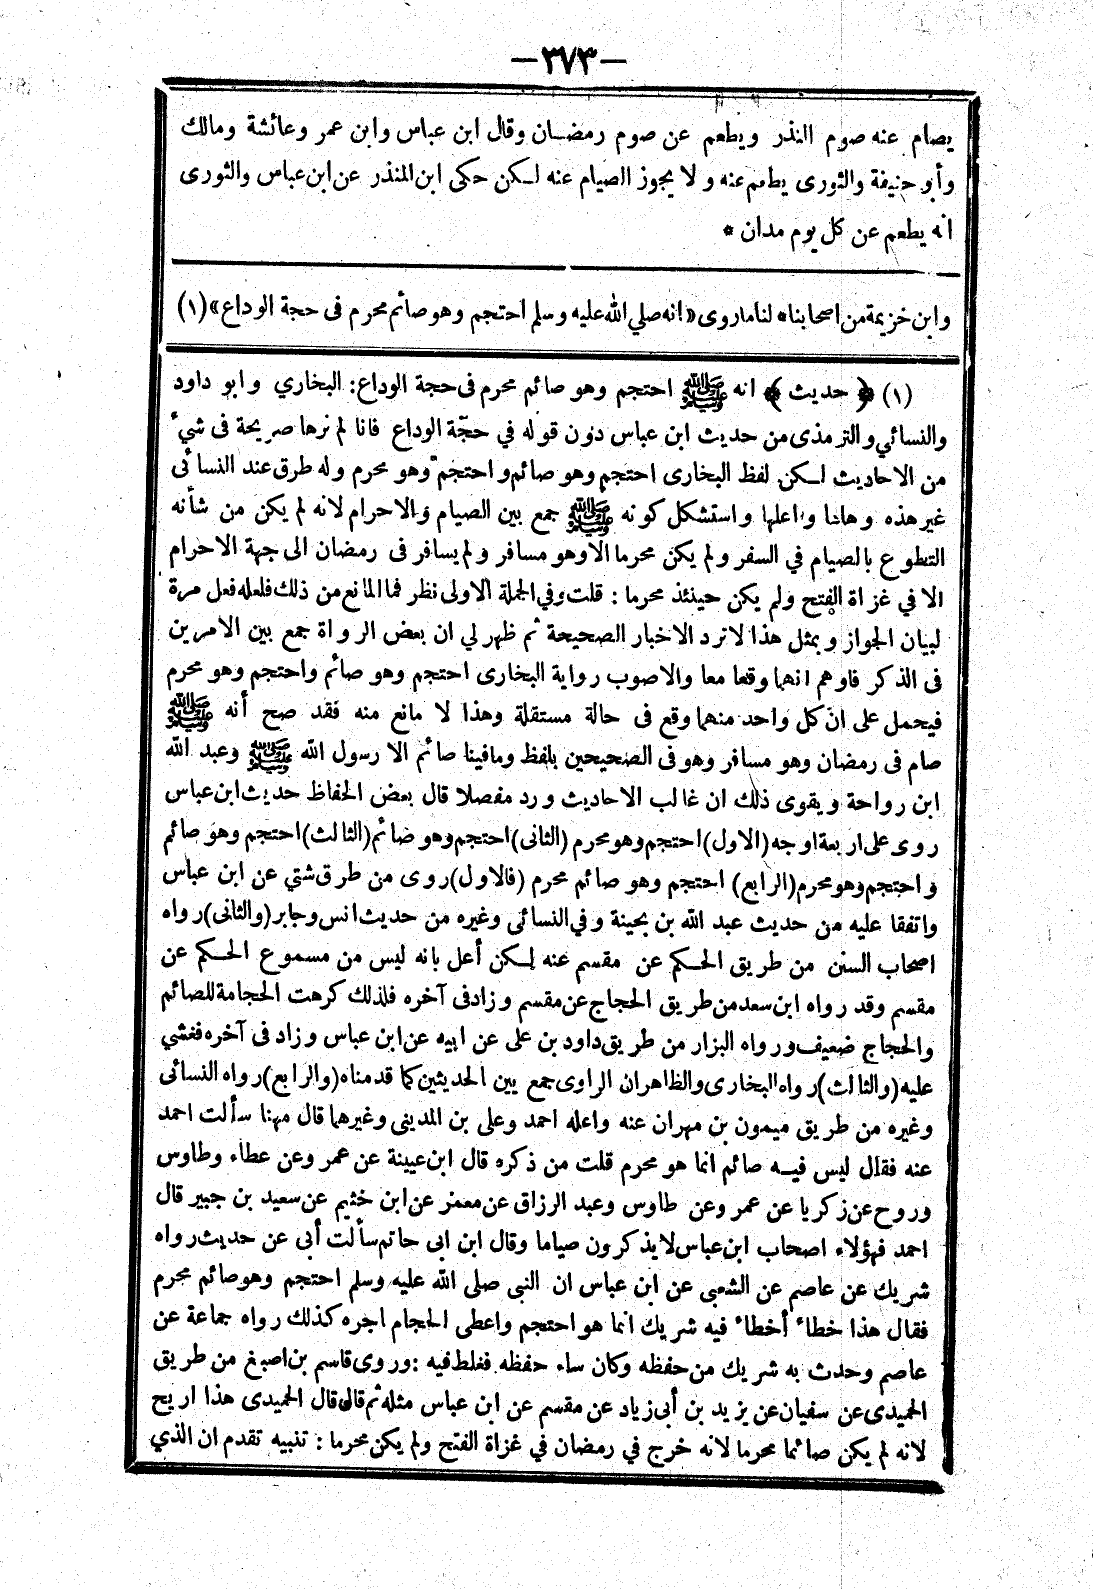 —٣٧٣—
يصام عنه صوم النذر ويطعم عن صوم رمضان وقال ابن عباس وابن عمر وعائشة ومالك
وأبو حنيفة والثورى يطعم عنه ولا يجوز الصيام عنه لكن حكى ابن المنذر عن ابن عباس والثورى
انه يطعم عن كل يوم مدان *
وابن خزيمة من اصحابنا * لنا ماروى «انه صلي الله عليه وسلم احتجم وهو صائم محرم فى حجة الوداع» (١)
(١) ﴿ حديث ﴾ انه ﷺ احتجم وهو صائم محرم فى حجة الوداع: البخاري وابو داود
والنسائي والترمذى من حديث ابن عباس دون قوله في حجة الوداع فانا لم نرها صريحة فى شيء
من الاحاديث لكن لفظ البخارى احتجم وهو صائم واحتجم وهو محرم وله طرق عند النسائى
غير هذه وهاها واعلها واستشكل كونه ﷺ جمع بين الصيام والاحرام لانه لم يكن من شأنه
التطوع بالصيام في السفر ولم يكن محرما الا وهو مسافر ولم يسافر فى رمضان الى جهة الاحرام
الا في غزاة الفتح ولم يكن حينئذ محرما : قلت وفي الجملة الاولى نظر فما المانع من ذلك فلعله فعل مرة
لبيان الجواز وبمثل هذا لا ترد الاخبار الصحيحة ثم ظهر لي ان بعض الرواة جمع بين الامرين
فى الذكر فاوهم انهما وقعا معا والاصوب رواية البخارى احتجم وهو صائم واحتجم وهو محرم
فيحمل على ان كل واحد منهما وقع فى حالة مستقلة وهذا لا مانع منه فقد صح أنه ﷺ
صام فى رمضان وهو مسافر وهو فى الصحيحين بلفظ وما فينا صائم الا رسول الله ﷺ وعبد الله
ابن رواحة ويقوى ذلك ان غالب الاحاديث ورد مفصلا قال بعض الحفاظ حديث ابن عباس
روى على اربعة اوجه (الاول) احتجم وهو محرم (الثانى) احتجم وهو صائم (الثالث) احتجم وهو صائم
واحتجم وهو محرم (الرابع) احتجم وهو صائم محرم (فالاول) روى من طرق شتي عن ابن عباس
واتفقا عليه من حديث عبد الله بن بحينة وفي النسائى وغيره من حديث انس وجابر (والثانى) رواه
اصحاب السنن من طريق الحكم عن مقسم عنه لكن أعل بانه ليس من مسموع الحكم عن
مقسم وقد رواه ابن سعد من طريق الحجاج عن مقسم وزاد فى آخره فلذلك كرهت الحجامة للصائم
والحجاج ضعيف ورواه البزار من طريق داود بن على عن ابيه عن ابن عباس وزاد فى آخره فغشي
عليه (والثالث) رواه البخارى والظاهر ان الراوى جمع بين الحديثين كما قدمناه (والرابع) رواه النسائى
وغيره من طريق ميمون بن مهران عنه واعله احمد وعلى بن المدينى وغيرهما قال مهنا سألت احمد
عنه فقال ليس فيه صائم انما هو محرم قلت من ذكره قال ابن عيينة عن عمر وعن عطاء وطاوس
وروح عن زكريا عن عمر وعن طاوس وعبد الرزاق عن معمر عن ابن خثيم عن سعيد بن جبير قال
احمد فهؤلاء اصحاب ابن عباس لا يذكرون صياما وقال ابن ابى حاتم سألت أبى عن حديث رواه
شريك عن عاصم عن الشعبى عن ابن عباس ان النبى صلى الله عليه وسلم احتجم وهو صائم محرم
فقال هذا خطاء أخطاء فيه شريك انما هو احتجم واعطى الحجام اجره كذلك رواه جماعة عن
عاصم وحدث به شريك من حفظه وكان ساء حفظه فغلط فيه : وروى قاسم بن اصبغ من طريق
الحميدى عن سفيان عن يزيد بن أبى زياد عن مقسم عن ابن عباس مثله ثم قال قال الحميدى هذا اريح
لانه لم يكن صائما محرما لانه خرج في رمضان في غزاة الفتح ولم يكن محرما : تنبيه تقدم ان الذي